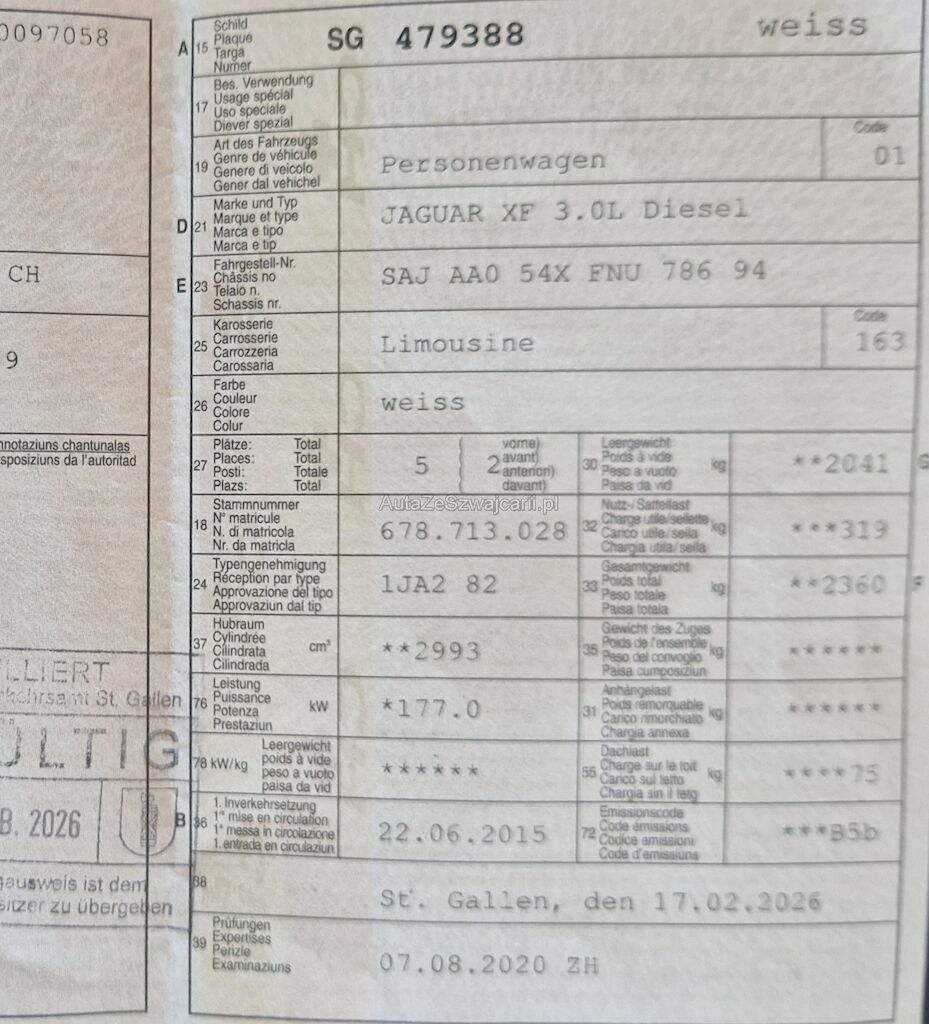 0097058
CH
9
nnotaziuns chantunalas
sposiziuns da l'autoritad
LLIERT
kehrsamt St. Gallen
ÜLTIG
B. 2026
gausweis ist dem
sitzer zu übergeben
A 15 Schild Plaque Targa Numer SG 479388 weiss
17 Bes. Verwendung Usage spécial Uso speciale Diever spezial
19 Art des Fahrzeugs Genre de véhicule Genere di veicolo Gener dal vehichel Personenwagen Code 01
D 21 Marke und Typ Marque et type Marca e tipo Marca e tip JAGUAR XF 3.0L Diesel
E 23 Fahrgestell-Nr. Châssis no Telaio n. Schassis nr. SAJ AA0 54X FNU 786 94
25 Karosserie Carrosserie Carrozzeria Carossaria Limousine Code 163
26 Farbe Couleur Colore Colur weiss
27 Plätze: Total Places: Total Posti: Totale Plazs: Total 5 2 vorne) avant) anteriori) davant)
30 Leergewicht Poids à vide Peso a vuoto Paisa da vid kg **2041 G
AutaZeSzwajcarii.pl
18 Stammnummer N° matricule N. di matricola Nr. da matricla 678.713.028
32 Nutz-/Sattellast Charge utile/sellette Carico utile/sella Chargia utila/sella kg ***319
24 Typengenehmigung Réception par type Approvazione del tipo Approvaziun dal tip 1JA2 82
33 Gesamtgewicht Poids total Peso totale Paisa totala kg **2360 F
37 Hubraum Cylindrée Cilindrata Cilindrada cm³ **2993
35 Gewicht des Zuges Poids de l'ensemble Peso del convoglio Paisa cumposiziun kg ******
76 Leistung Puissance Potenza Prestaziun kW *177.0
31 Anhängelast Poids remorquable Carico rimorchiato Chargia annexa kg ******
78 kW/kg Leergewicht poids à vide peso a vuoto paisa da vid ******
55 Dachlast Charge sur le toit Carico sul tetto Chargia sin il tetg kg ****75
B 36 1. Inverkehrsetzung 1re mise en circulation 1a messa in circolazione 1. entrada en circulaziun 22.06.2015
72 Emissionscode Code émissions Codice emissioni Code d'emissiuns ***B5b
38 St. Gallen, den 17.02.2026
39 Prüfungen Expertises Perizie Examinaziuns 07.08.2020 ZH